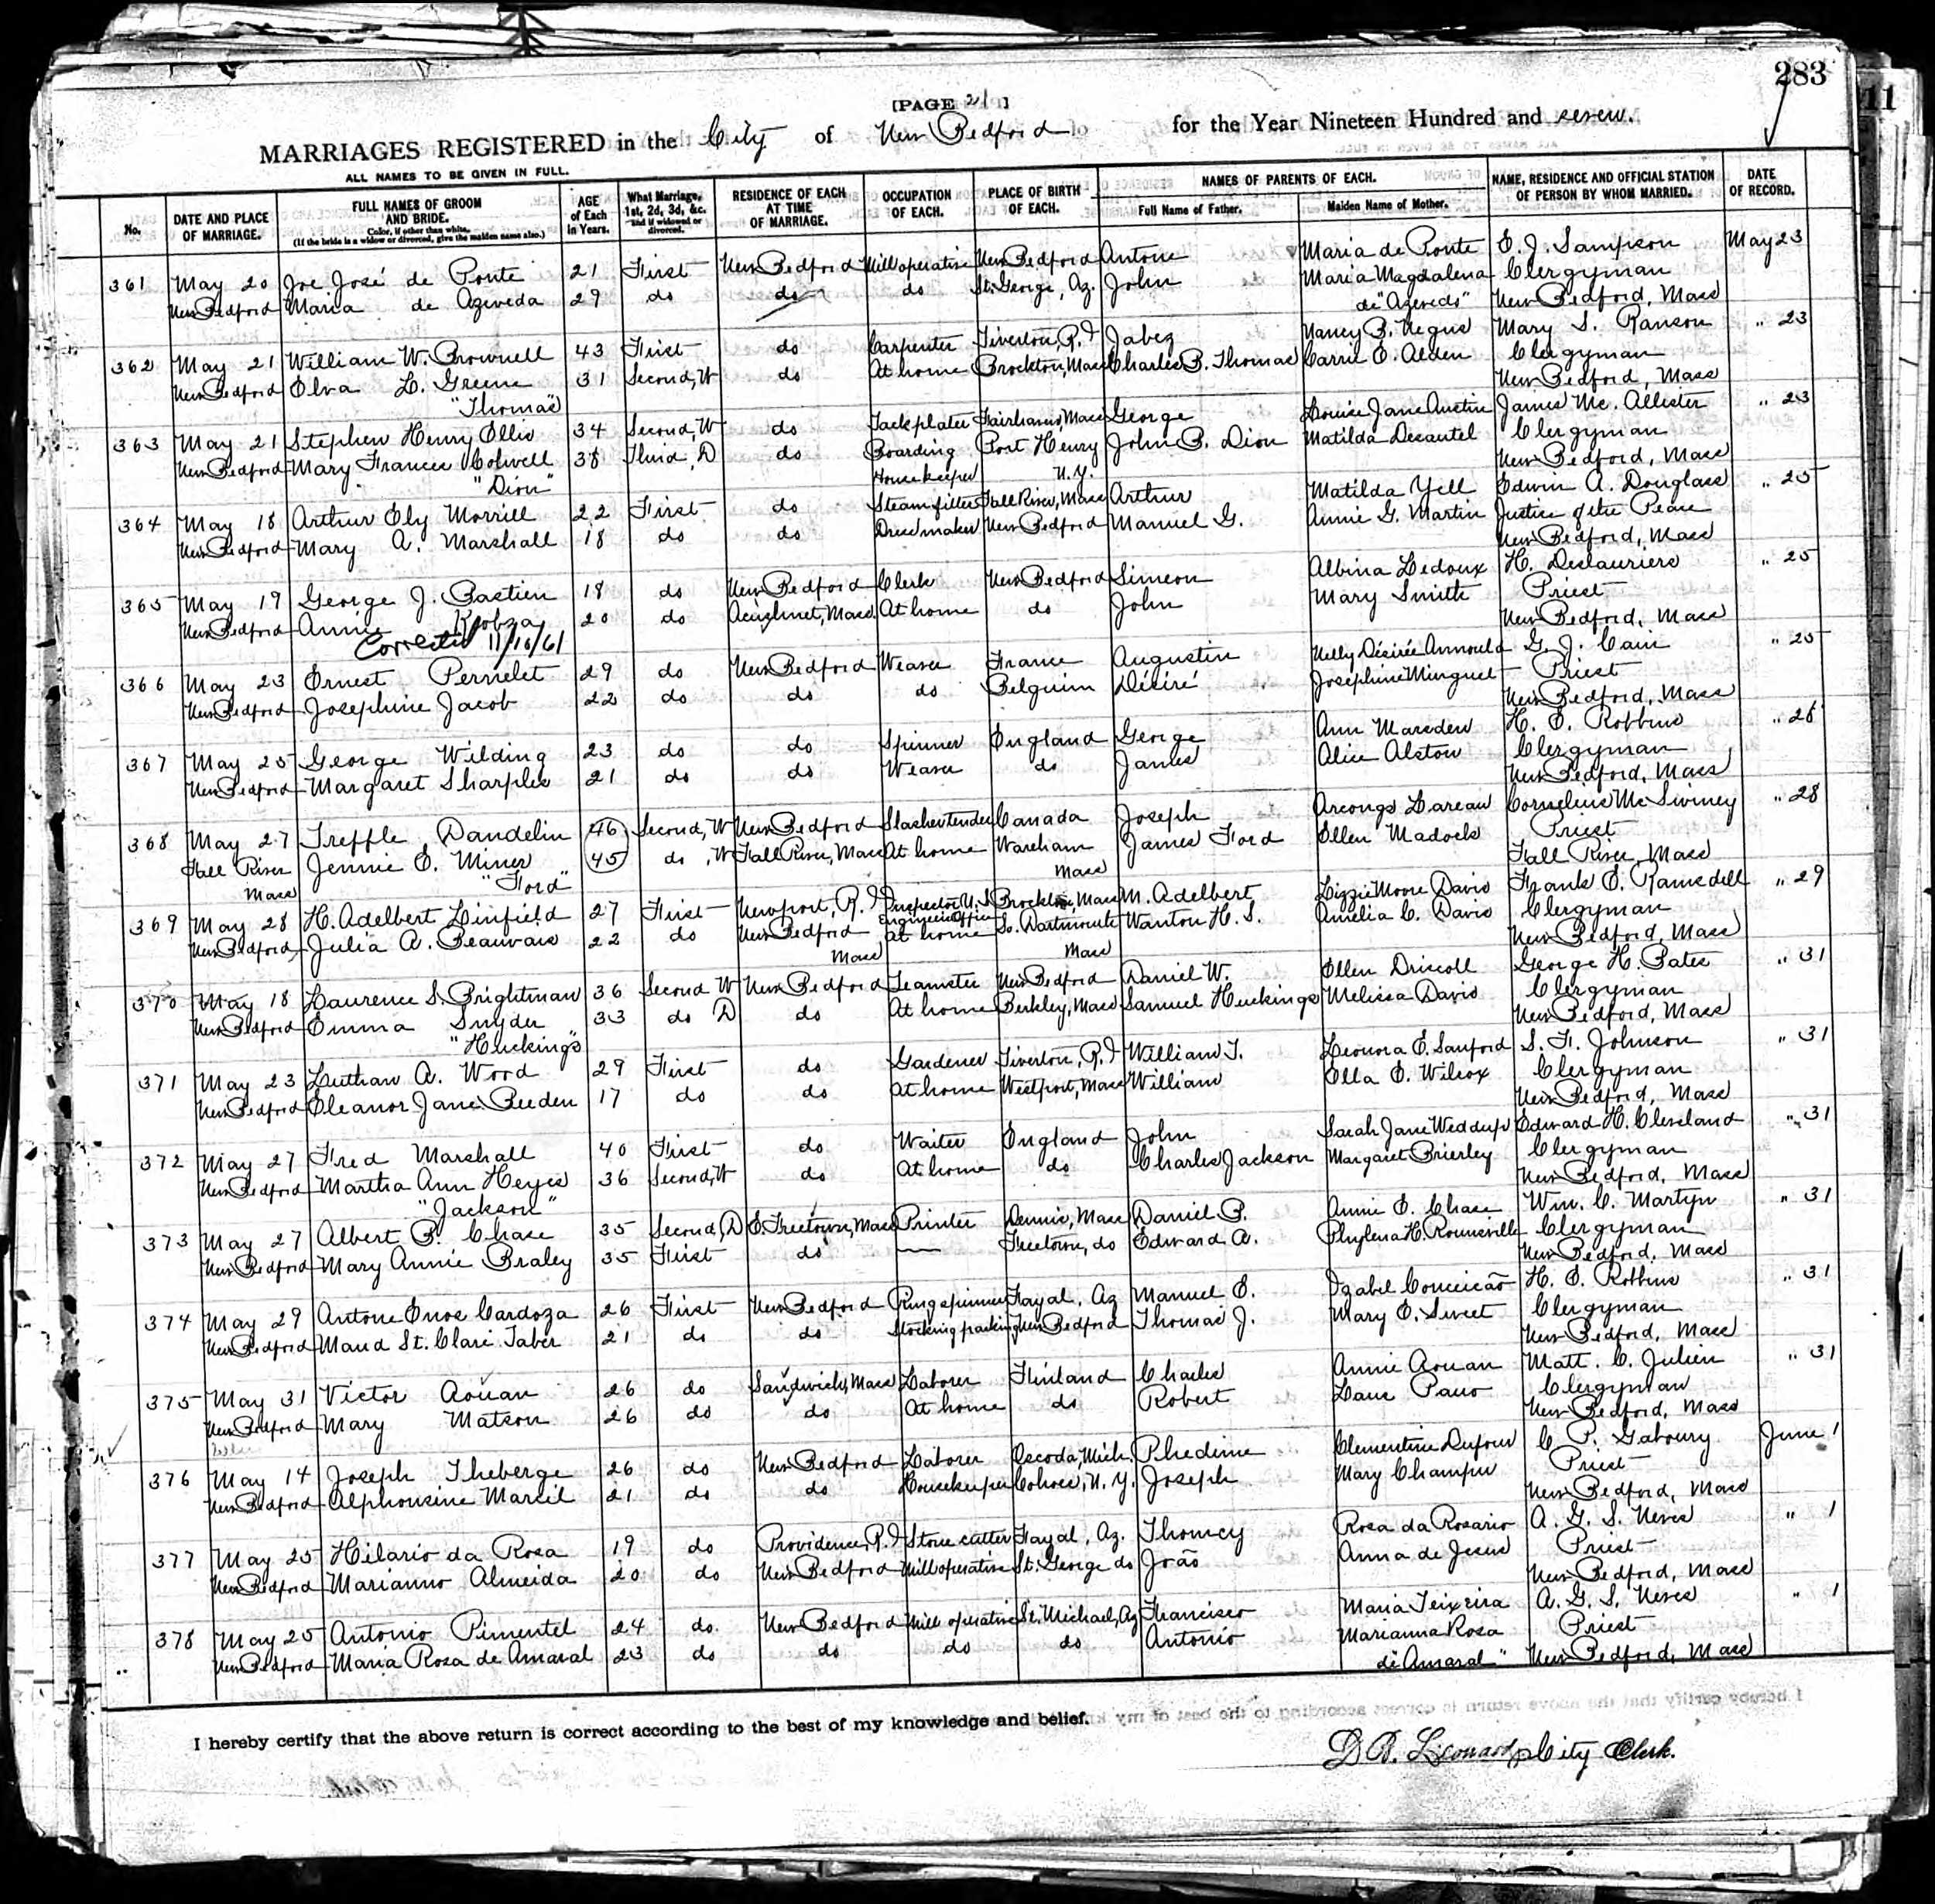 283
11
[PAGE 21]
MARRIAGES REGISTERED in the City of New Bedford for the Year Nineteen Hundred and seven.
ALL NAMES TO BE GIVEN IN FULL.
No. DATE AND PLACE OF MARRIAGE. FULL NAMES OF GROOM AND BRIDE. Color, if other than white. (If the bride is a widow or divorced, give the maiden name also.) AGE of Each in Years. What Marriage, 1st, 2d, 3d, &c. and if widowed or divorced. RESIDENCE OF EACH AT TIME OF MARRIAGE. OCCUPATION OF EACH. PLACE OF BIRTH OF EACH. NAMES OF PARENTS OF EACH. Full Name of Father. Maiden Name of Mother. NAME, RESIDENCE AND OFFICIAL STATION OF PERSON BY WHOM MARRIED. DATE OF RECORD.
361 May 20 Joe José de Ponte 21 First New Bedford Mill operative New Bedford Antone Maria de Ponte E. J. Sampson May 23
New Bedford Maria de Azeveda 29 do do do St. George, Az. John Maria Magdalena Clergyman
de "Azevedo" New Bedford, Mass
362 May 21 William W. Brownell 43 First do Carpenter Tiverton, R.I Jabez Nancy B. Negus Mary S. Ranson " 23
New Bedford Elva L. Greene 31 Second, W do At home Brockton, Mass Charles B. Thomas Carrie E. Alden Clergyman
"Thomas" New Bedford, Mass
363 May 21 Stephen Henry Ellis 34 Second, W do Tackplater Fairhaven, Mass George Louise Jane Austin James Mc. Allister " 23
New Bedford Mary Frances Colwell 38 Third, D do Boarding Port Henry John B. Dion Matilda Decautel Clergyman
"Dion" Housekeeper N.Y. New Bedford, Mass
364 May 18 Arthur Ely Morrill 22 First do Steamfitter Fall River, Mass Arthur Matilda Yell Edwin A. Douglass " 25
New Bedford Mary A. Marshall 18 do do Dressmaker New Bedford Manuel G. Annie G. Martin Justice of the Peace
New Bedford, Mass
365 May 19 George J. Bastien 18 do New Bedford Clerk New Bedford Simeon Albina Ledoux H. Deslauriers " 25
New Bedford Annie 20 do Acushnet, Mass. At home do John Mary Smith Priest
Corrected 11/16/61 New Bedford, Mass
366 May 23 Ernest Pernelet 29 do New Bedford Weaver France Augustin Nelly Désirée Arnould G. J. Cain " 25
New Bedford Josephine Jacob 22 do do do Belguim Désiré Josephine Minguet Priest
New Bedford, Mass
367 May 25 George Wilding 23 do do Spinner England George Ann Marsden H. E. Robbins " 28
New Bedford Margaret Sharples 21 do do Weaver do James Alice Alston Clergyman
New Bedford, Mass
368 May 27 Treffle Dandelin 46 Second, W New Bedford Slashertender Canada Joseph Lareau Cornelius McSwiney " 28
Fall River Jennie E. Miner 45 do, W Fall River, Mass At home Wareham James Ford Ellen Madocks Priest
Mass "Ford" Mass Fall River, Mass
369 May 28 H. Adelbert Linfield 27 First Newport, R.I Inspector U.S Brockton, Mass M. Adelbert Lizzie Moore Davis Frank E. Ramsdell " 29
New Bedford Julia A. Beauvais 22 do New Bedford Engineer Office at home So. Dartmouth Wanton H. S. Amelia C. Davis Clergyman
Mass Mass New Bedford, Mass
370 May 18 Laurence S. Brightman 36 Second W New Bedford Teamster New Bedford Daniel W. Ellen Driscoll George H. Bates " 31
New Bedford Emma Snyder 33 do D do At home Berkley, Mass Samuel Huckings Melissa Davis Clergyman
"Huckings" New Bedford, Mass
371 May 23 Luthan A. Wood 29 First do Gardener Tiverton, R.I William T. Leonora E. Sanford S. F. Johnson " 31
New Bedford Eleanor Jane Beeden 17 do do At home Westport, Mass William Ella E. Wilcox Clergyman
New Bedford, Mass
372 May 27 Fred Marshall 40 First do Waiter England John Sarah Jane Weddup Edward H. Cleveland " 31
New Bedford Martha Ann Heyes 36 Second, W do At home do Charles Jackson Margaret Brierley Clergyman
"Jackson" New Bedford, Mass
373 May 27 Albert B. Chase 35 Second, D E. Freetown, Mass Printer Dennis, Mass Daniel B. Annie E. Chase Wm. C. Martyn " 31
New Bedford Mary Annie Braley 35 First do — Freetown, do Edward A. Phylena H. Rounseville Clergyman
New Bedford, Mass
374 May 29 Antone Enos Cardoza 26 First New Bedford Ring spinner Fayal, Az Manuel E. Izabel Conceicão H. E. Robbins " 31
New Bedford Maud St. Clare Taber 21 do do Stocking packing New Bedford Thomas J. Mary E. Sweet Clergyman
New Bedford, Mass
375 May 31 Victor Aouan 26 do Sandwich, Mass Laborer Finland Charles Annie Aouan Matt. C. Julien " 31
New Bedford Mary Matson 26 do do At home do Robert Clergyman
New Bedford, Mass
376 May 14 Joseph Theberge 26 do New Bedford Laborer Oscoda, Mich. Phedime Clementine Dufour C. P. Gaboury June 1
New Bedford Alphonsine Marcil 21 do do Housekeeper Cohoes, N.Y. Joseph Mary Priest
New Bedford, Mass
377 May 25 Hilario da Rosa 19 do Providence, R.I Stone cutter Fayal, Az. Thomey Rosa da Rosario A. G. S. Neves " 1
New Bedford Marianno Almeida 20 do New Bedford Mill operative St. George do João Anna de Jesus Priest
New Bedford, Mass
378 May 25 Antonio Pimentel 24 do. New Bedford Mill operative St. Michael, Az Francisco Maria Teixeira A. G. S. Neves " 1
New Bedford Maria Rosa de Amaral 23 do do do do Antonio Marianna Rosa Priest
de Amaral" New Bedford, Mass
I hereby certify that the above return is correct according to the best of my knowledge and belief.
D B. Leonard, City Clerk.